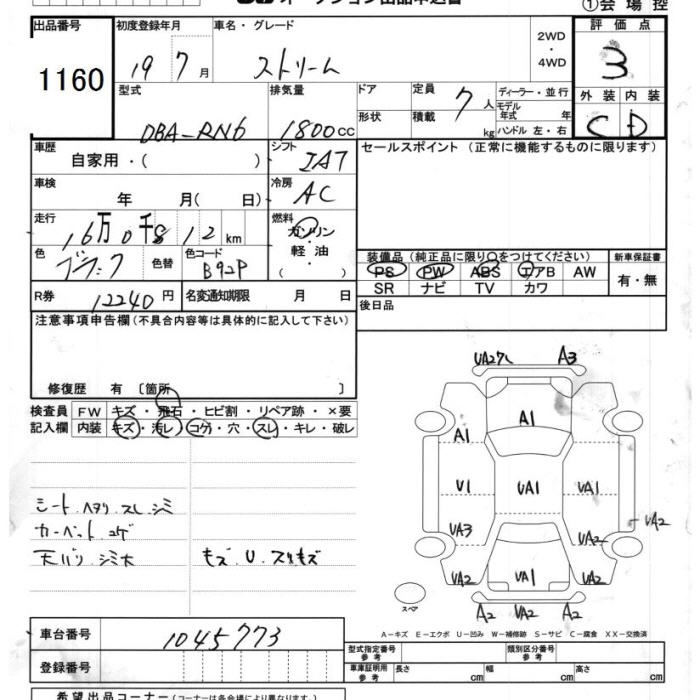 ①会場控
出品番号
1160
初度登録年月
19 7 月
車名・グレード
ストリーム
2WD
・
4WD
評価点
3
外装 内装
C D
型式
DBA-RN6
排気量
1800cc
ドア
形状
定員
7 人
積載
kg
ディーラー・並行
モデル年式 年
ハンドル 左・右
車歴
自家用・( )
シフト
IAT
セールスポイント (正常に機能するものに限ります)
車検
年 月( 日)
冷房
AC
走行
16万0千812km
燃料
ガソリン
・
軽油
・
( )
色
ブラック
色替
色コード
B92P
装備品(純正品に限り○をつけてください)
PS PW ABS エアB AW
SR ナビ TV カワ
新車保証書
有・無
R券
12240円
名変通知期限 月 日
後日品
注意事項申告欄(不具合内容等は具体的に記入して下さい)
修復歴 有 〔箇所 〕
検査員
記入欄
FW キズ・飛石・ヒビ割・リペア跡・×要
内装 キズ・汚レ・コゲ・穴・スレ・キレ・破レ
シート ヘタリ スレ シミ
カーペット コゲ
天バリ シミ大
モズ U スリキズ
UA27L A3
A1
A1
U1 UA1 UA1
UA3 UA2 UA2
UA2 UA1 UA2
A2 UA2 A2
スペア
A-キズ E-エクボ U-凹み W-補修跡 S-サビ C-腐食 XX-交換済
車台番号
1045773
登録番号
型式指定番号
参考
類別区分番号
参考
車庫証明用
参考
長さ cm
幅 cm
高さ cm
希望出品コーナー(コーナーは各会場により異なります)